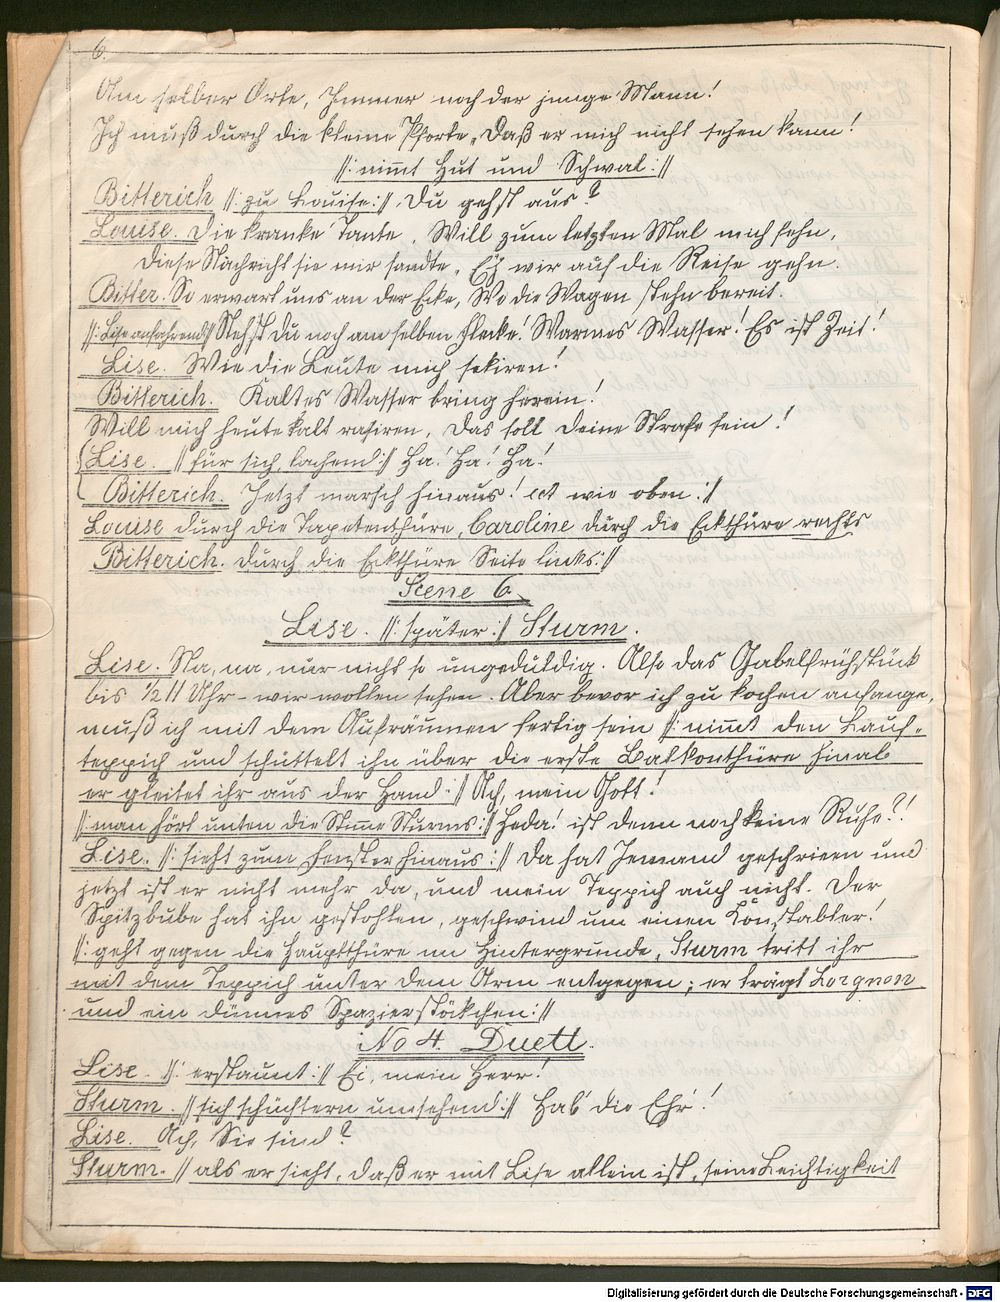 6.
Am selber Orte, Immer noch der junge Mann!
Ich muß durch die kleine Pforte, Daß er mich nicht sehen kann!
//: nimmt Hut und Schwal ://
Bitterich //: zu Louise ://. Du gehst aus?
Louise. Die kranke Tante, Will zum letzten Mal mich sehn,
Diese Nachricht sie mir sandte, Eh wir auf die Reise gehn.
Bitter. So erwart uns an der Ecke, Wo die Wagen stehn bereit.
//: Lise anfahrend:// Stehst Du noch am selben Flecke! Warmes Wasser! Es ist Zeit!
Lise. Wie die Leute mich sekiren!
Bitterich. Kaltes Wasser bring herein!
Will mich heute kalt rasiren, Das soll Deine Strafe sein!
Lise. // für sich, lachend :// Ha! Ha! Ha!
Bitterich. Jetzt marsch hinaus! ect wie oben ://
Louise durch die Tapetenthüre, Caroline durch die Eckthüre rechts
Bitterich. durch die Eckthüre Seite links ://
Scene 6.
Lise. //: später :// Sturm.
Lise. Na, na, nur nicht so ungeduldig. Also das Gabelfrühstück
bis 1/2 11 Uhr – wir wollen sehen. Aber bevor ich zu kochen anfange,
muß ich mit dem Aufräumen fertig sein //: nimmt den Lauf-
teppich und schüttelt ihn über die erste Balkonthüre hinab
er gleitet ihr aus der Hand :// Ach, mein Gott!
//: man hört unten die Stimme Sturms :// Heda! ist denn noch keine Ruhe?!
Lise. //: sieht zum Fenster hinaus :// Da hat Jemand geschrieen und
jetzt ist er nicht mehr da, und mein Teppich auch nicht. Der
Spitzbube hat ihn gestohlen, geschwind um einen Konstabler!
//: geht gegen die Hauptthüre im Hintergrunde, Sturm tritt ihr
mit dem Teppich unter dem Arm entgegen; er trägt Lorgnon
und ein dünnes Spazierstöckchen ://
No 4. Duett.
Lise. //: erstaunt :// Ei, mein Herr!
Sturm. // sich schüchtern umsehend :// Hab' die Ehr'!
Lise. Ach, Sie sind?
Sturm. // als er sieht, daß er mit Lise allein ist, seine Leichtigkeit
Digitalisierung gefördert durch die Deutsche Forschungsgemeinschaft - DFG